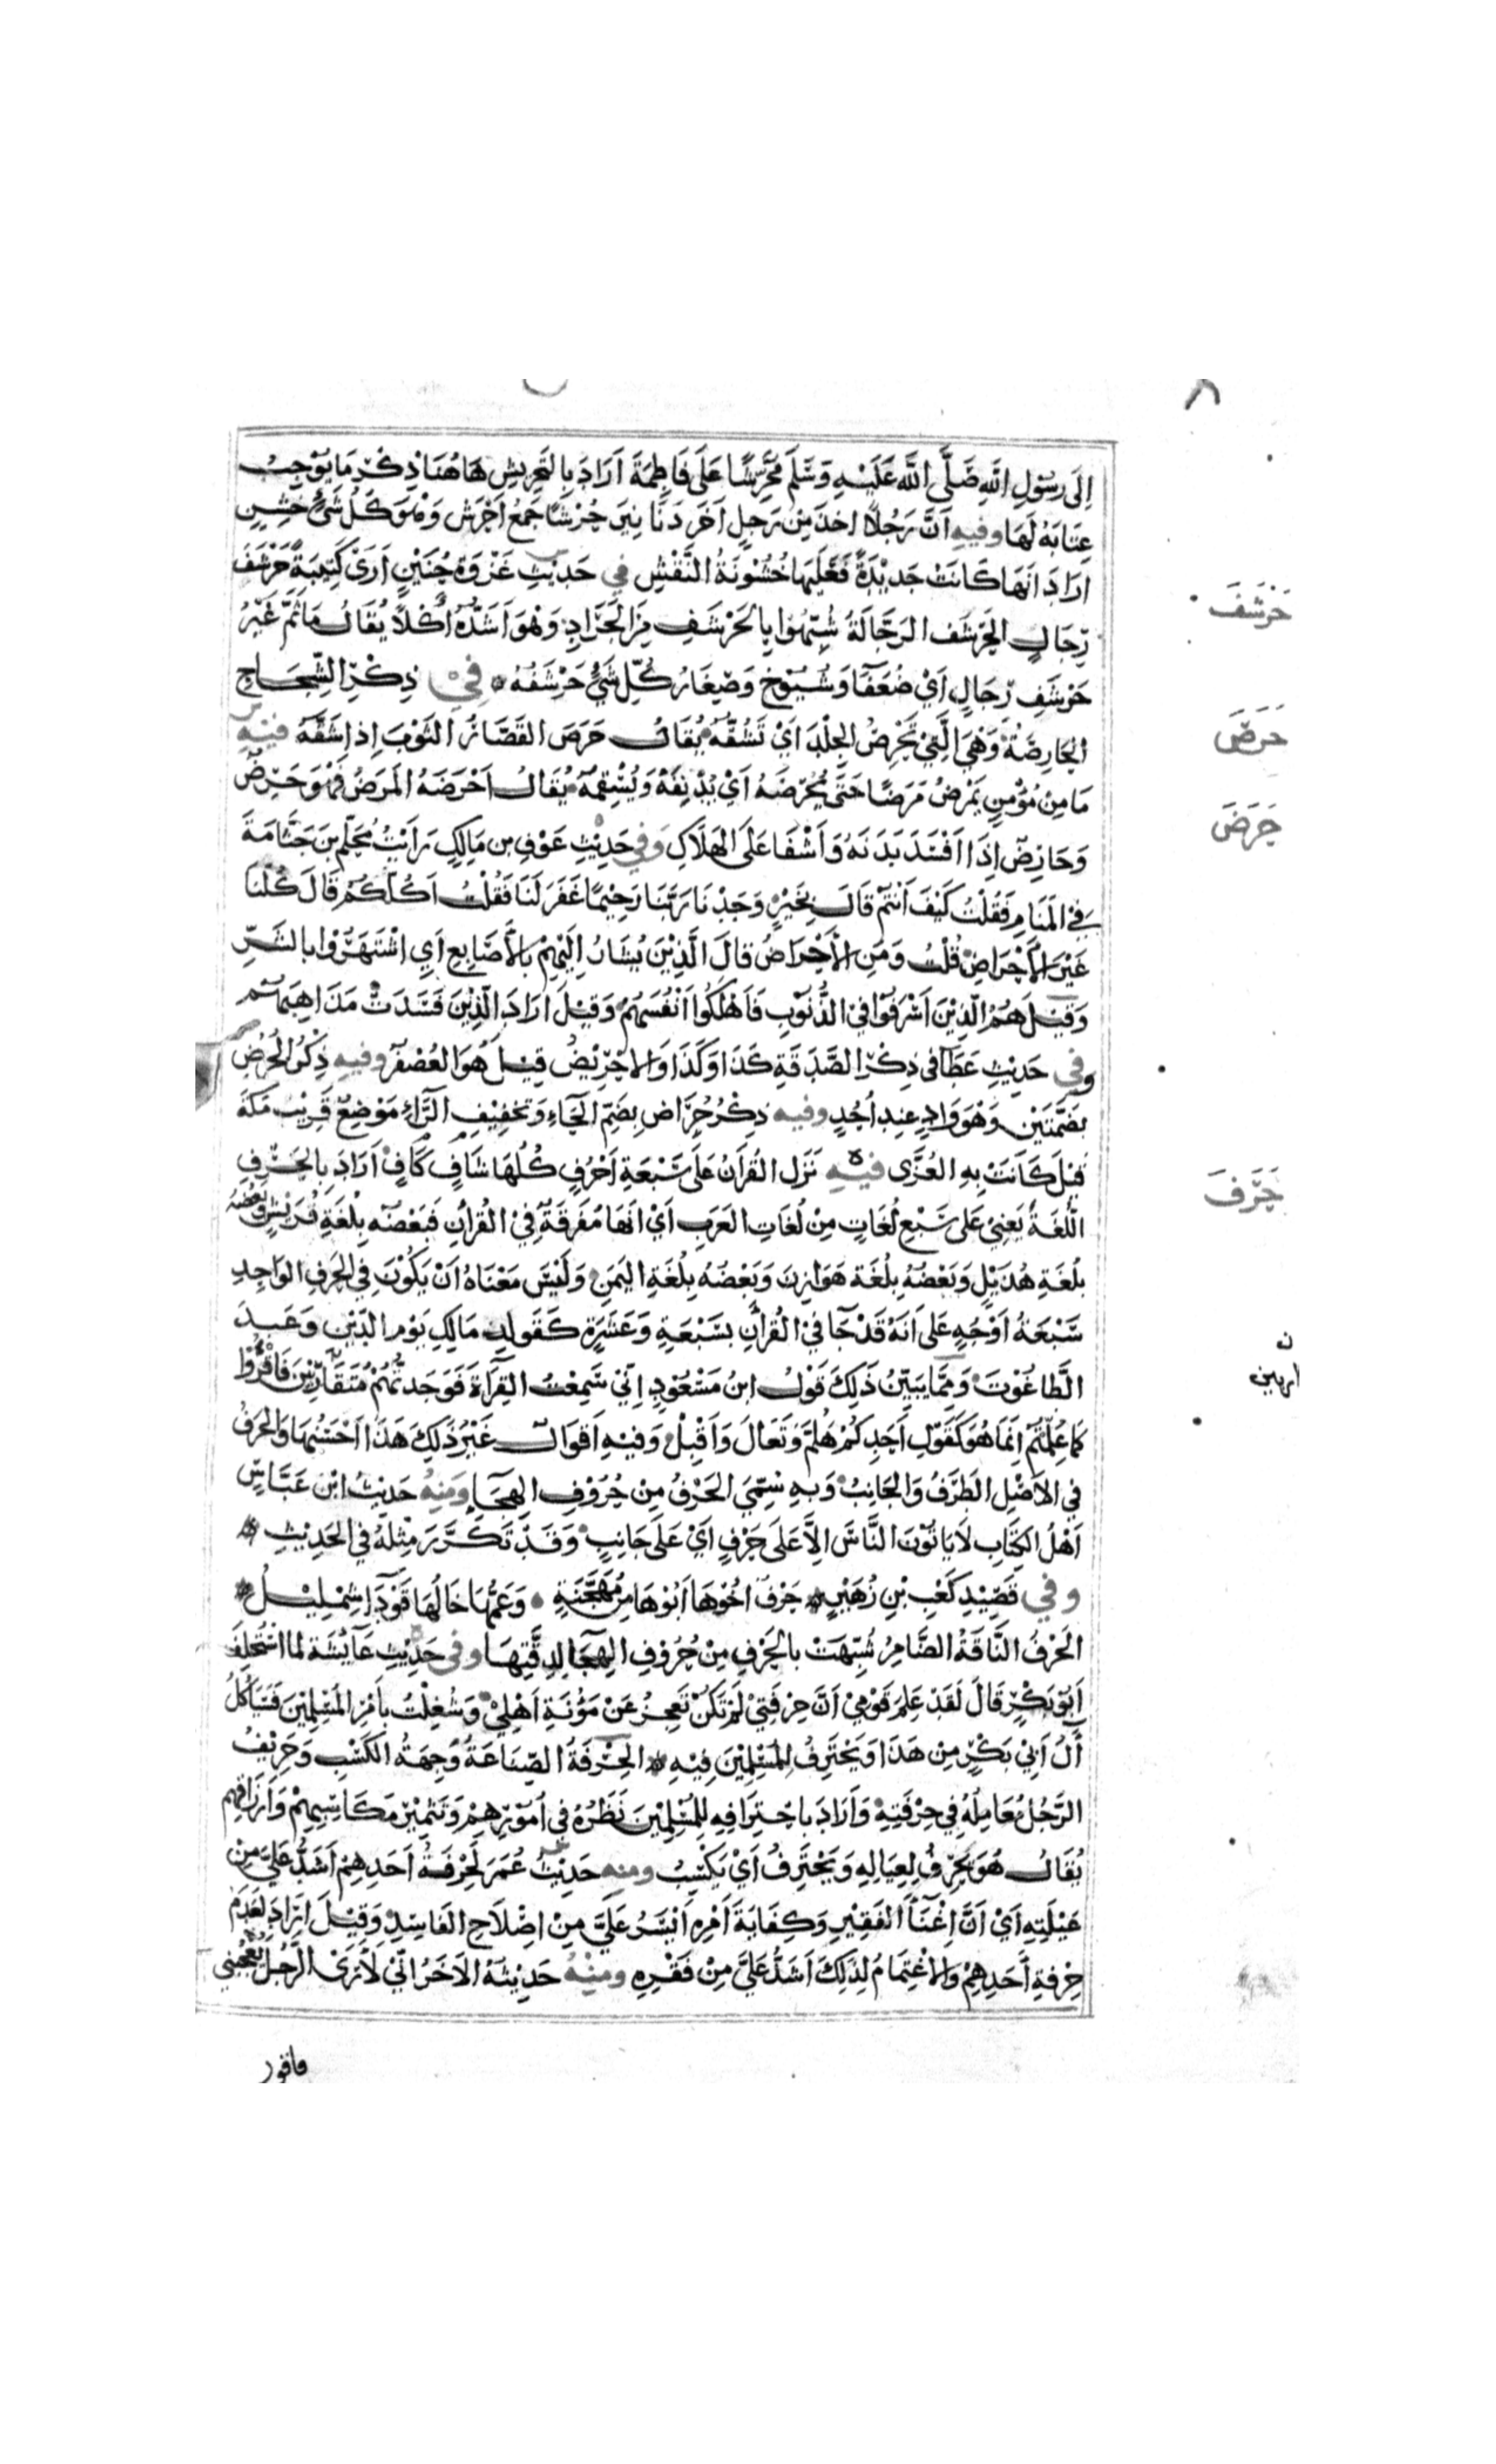 إلى رسول الله صلى الله عليه وسلم محرشا على فاطمة أراد بالتحريش هاهنا ذكر ما يوجب
عتابه لها وفيه أن رجلا أخذ من رجل آخر دنانير حرشا جمع أحرش وهو كل شئ خشن
أراد أنها كانت جديدة فعليها خشونة النقش في حديث غزوة حنين أرى كتيبة حرشف
حرشف
رجال الحرشف الرجالة شبهوا بالحرشف من الجراد وهو أشده أكلا يقال ما ثم غير
حرشف رجال أي ضعفا وشيوخ وصغار كل شئ حرشفه في ذكر الشجاج
حرص
الحارصة وهي التي تحرص الجلد أي تشقه يقال حرص القصار الثوب إذا شقه فيه
ما من مؤمن يمرض مرضا حتى يحرضه أي يدنفه ويسقمه يقال أحرضه المرض فهو حرض
حرض
وحارض إذا أفسد بدنه وأشفا على الهلاك وفي حديث عوف بن مالك رأيت محلم بن جثامة
في المنام فقلت كيف أنتم قال بخير وجدنا ربنا رحيما غفر لنا فقلت أكلكم قال كلنا
غير الأحراض قلت ومن الأحراض قال الذين يشار إليهم بالأصابع أي اشتهروا بالشر
وقيل هم الذين أسرفوا في الذنوب فأهلكوا أنفسهم وقيل أراد الذين فسدت مذاهبهم
وفي حديث عطا في ذكر الصدقة كذا وكذا والاحريض قيل هو العصفر وفيه ذكر الحرض
بضمتين وهو واد عند أحد وفيه ذكر حراض بضم الحاء وتخفيف الراء موضع قريب مكة
قيل كانت به العزى فيه نزل القرآن على سبعة أحرف كلها شاف كاف أراد بالحرف
حرف
اللغة يعني على سبع لغات من لغات العرب أي أنها مفرقة في القرآن فبعضه بلغة قريش وبعضه
بلغة هذيل وبعضه بلغة هوازن وبعضه بلغة اليمن وليس معناه أن يكون في الحرف الواحد
سبعة أوجه على أنه قد جا في القرآن بسبعة وعشرة كقوله مالك يوم الدين وعبد
الطاغوت ومما يبين ذلك قول ابن مسعود إني سمعت القرأة فوجدتهم متقاربين فاقرؤا
كما علمتم إنما هو كقول أحدكم هلم وتعال وأقبل وفيه أقوال غير ذلك هذا أحسنها والحرف
في الأصل الطرف والجانب وبه سمي الحرف من حروف الهجا ومنه حديث ابن عباس
أهل الكتاب لا ياتون الناس إلا على حرف أي على جانب وقد تكرر مثله في الحديث
وفي قصيد كعب بن زهير حرف أخوها أبوها من مهجنة وعمها خالها قوداء شمليل
الحرف الناقة الضامر شبهت بالحرف من حروف الهجا لدقتها وفي حديث عائشة لما استخلف
أبو بكر قال لقد علم قومي أن حرفتي لم تكن تعجز عن مؤنة أهلي وشغلت بأمر المسلمين فسيأكل
آل أبي بكر من هذا ويحترف للمسلمين فيه الحرفة الصناعة وجهة الكسب وحريف
الرجل معامله في حرفته وأراد باحترافه للمسلمين نظره في أمورهم وتثمير مكاسبهم وأرزاقهم
يقال هو يحرف لعياله ويحترف أي يكتسب ومنه حديث عمر لحرفة أحدهم أشد علي من
عيلته أي أن إغنا الفقير وكفاية أمره أيسر علي من إصلاح الفاسد وقيل أراد لعدم
حرفة أحدهم والاغتمام لذلك أشد علي من فقره ومنه حديثه الآخر إني لأرى الرجل يعجبني